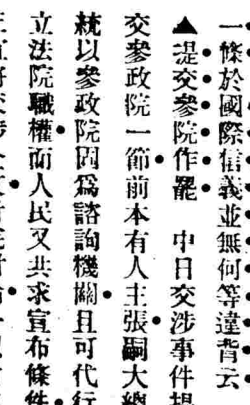 一條於國際信義並無何等違背云
▲提交參院作罷　中日交涉事件提
交參政院一節前本有人主張嗣大總
統以參政院固爲諮詢機關且可代行
立法院職權而人民又共求宣布條件